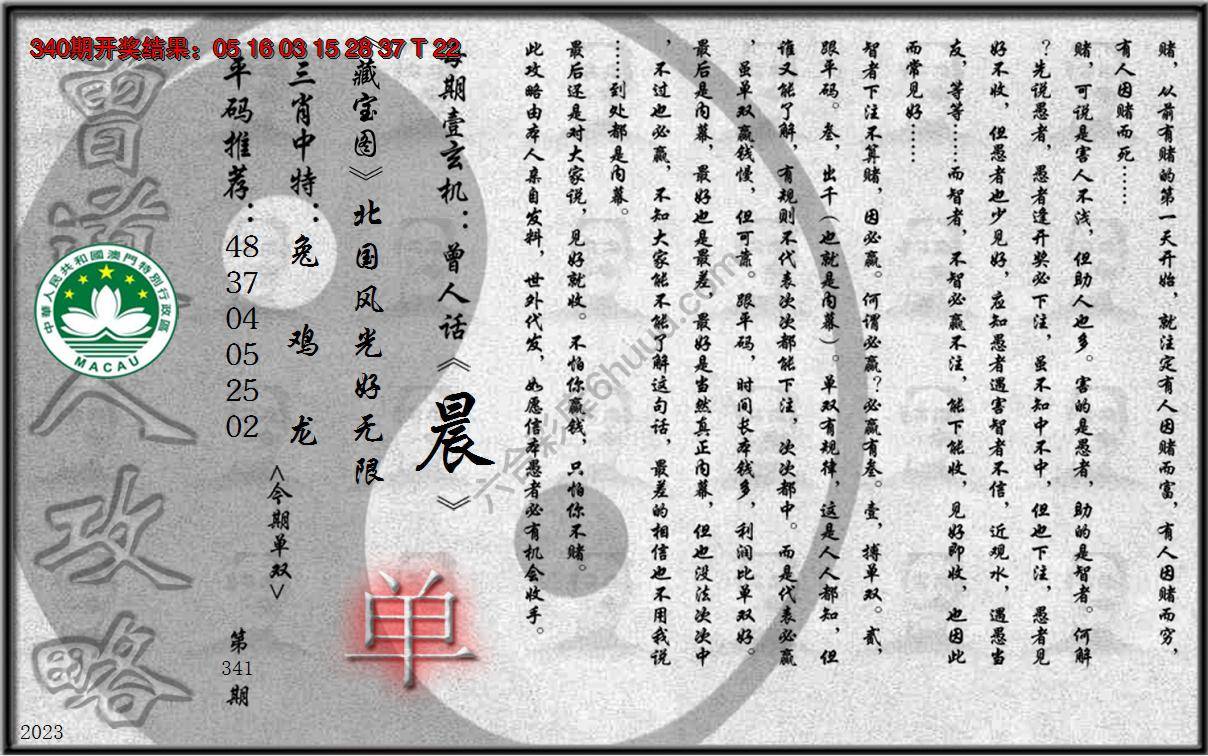 340期开奖结果：05 16 03 15 28 37 T 22
赌，从前有赌的第一天开始，就注定有人因赌而富，有人因赌而穷，
有人因赌而死……
赌，可说是害人不浅，但助人也多。害的是愚者，助的是智者。何解
？先说愚者，愚者逢开奖必下注，虽不知中不中，但也下注，愚者见
好不收，但愚者也少见好，应知愚者遇害智者不信，近观水，遇愚当
友，等等……而智者，不智必赢不注，能下能收，见好即收，也因此
而常见好……
智者下注不算赌，因必赢。何谓必赢？必赢有叁。壹，搏单双。贰，
跟平码。叁，出千（也就是内幕）。单双有规律，这是人人都知，但
谁又能了解，有规则不代表次次都能下注，次次都中。而是代表必赢
，虽单双赢钱慢，但可靠。跟平码，时间长本钱多，利润比单双好。
最后是内幕，最好也是最差，最好是当然真正内幕，但也没法次次中
，不过也必赢，不知大家能不能了解这句话，最差的相信也不用我说
……到处都是内幕。
最后还是对大家说，见好就收。不怕你赢钱，只怕你不赌。
此攻略由本人亲自发料，世外代发，如愿信本愚者必有机会收手。
每期壹玄机：曾人话《晨》
《藏宝图》北国风光好无限
三肖中特：兔 鸡 龙
<今期单双>
单
平码推荐：48 37 04 05 25 02
第341期
曾道人攻略
中華人民共和國澳門特別行政區
MACAU
六合彩库6huuu.com
2023